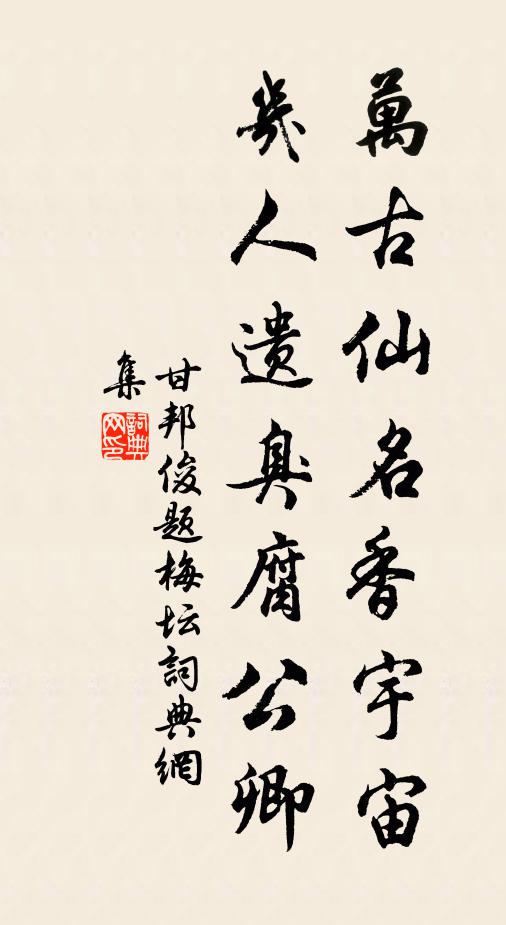 萬古仙名香宇宙
幾人遺臭腐公卿
甘邦俊题梅坛詞典網
集
詞典网印